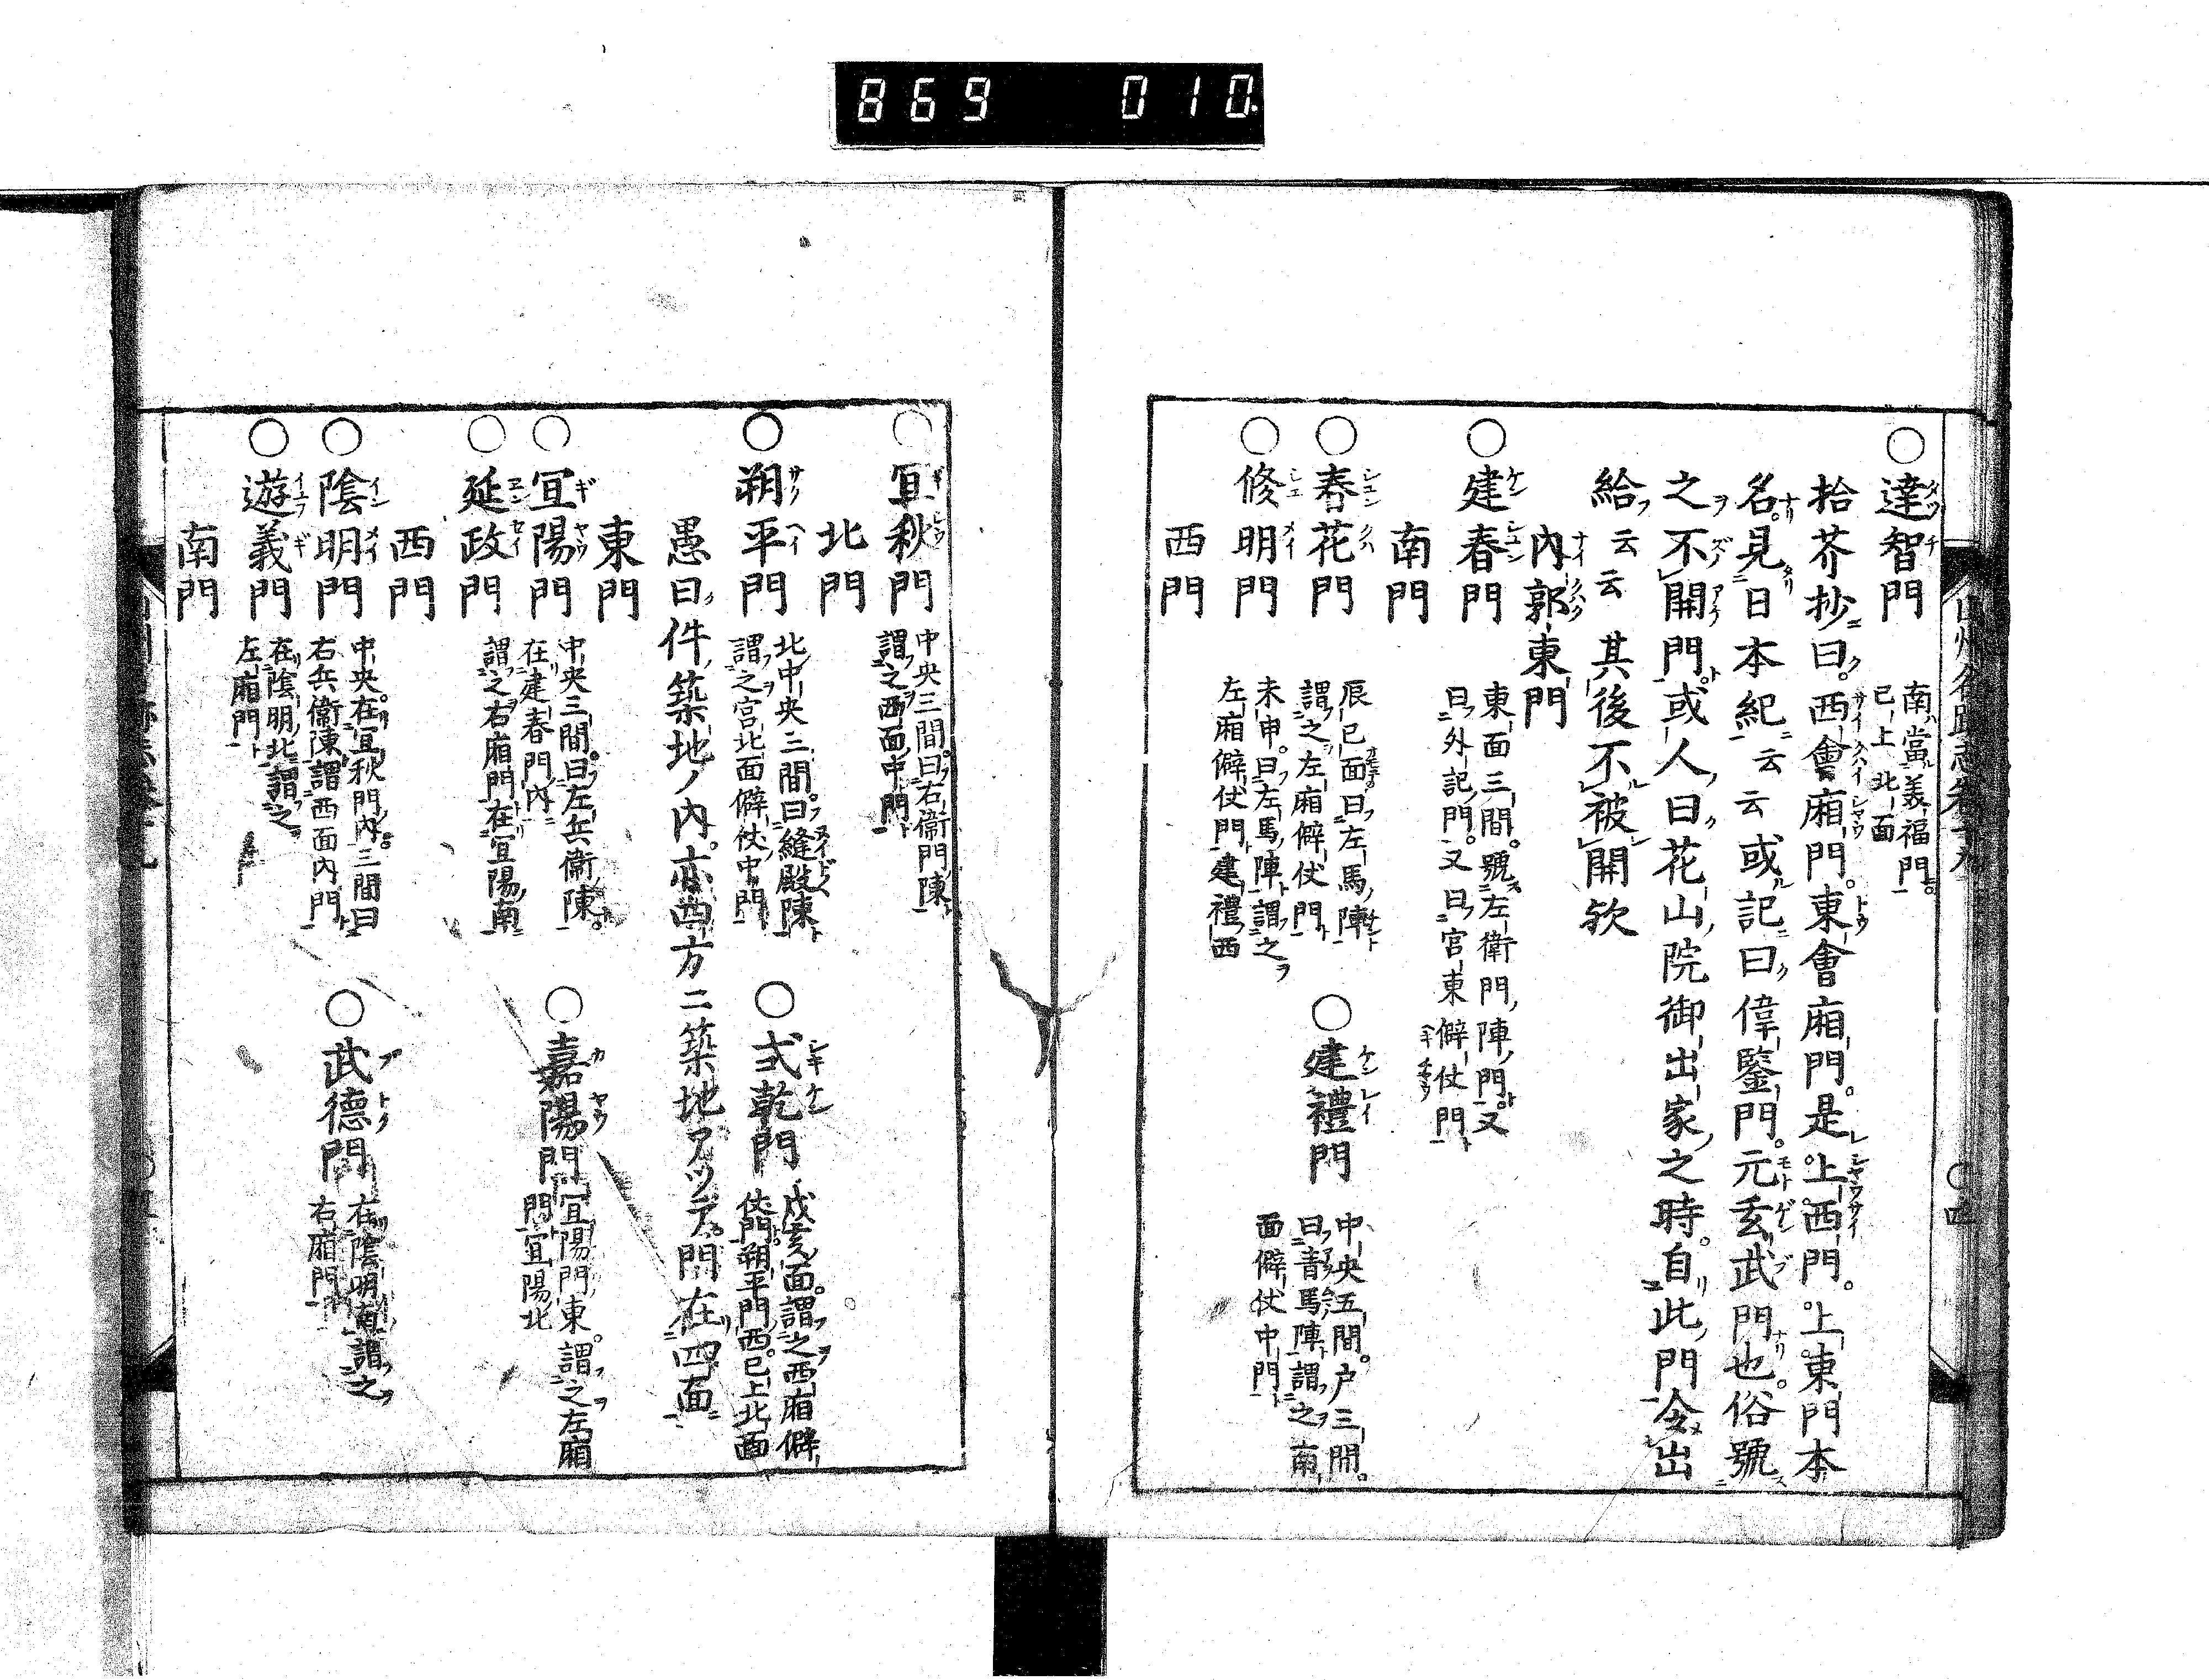 869 010
○達智門 南當義福門
已上北面
拾芥抄曰西會廂門東會廂門是上西門上東門本
名見日本紀云云或記曰偉鑒門元玄武門也俗號
之不開門或人曰花山院御出家之時自此門令出
給云云其後不被開欤
內郭東門
○建春門 東面三間號左衛門陣門又
曰外記門又曰宮東僻仗門
南門
○春花門 辰巳面曰左馬陣
謂之左廂僻仗門
○建禮門 中央五間戸三間
曰青馬陣謂之南
面僻仗中門
○修明門 未申曰左馬陣謂之
左廂僻仗門建禮西
西門
○宜秋門 中央三間曰右衞門陳
謂之西面中門
北門
○朔平門 北中央三間曰縫殿陳
謂之宮北面僻仗中門
○式乾門 戊亥面謂之西廂僻
仗門朔平門西已上北面
愚曰件築地ノ内亦四方ニ築地アツテ門在四面
東門
○宜陽門 中央三間曰左兵衞陳
在建春門內
○嘉陽門 宜陽門東謂之左廂
門宜陽北
○延政門 謂之右廂門在宜陽南
西門
○陰明門 中央在宜秋門內三間曰
右兵衞陳謂西面內門
○武德門 在陰明南謂之
右廂門
○遊義門 在陰明北謂之
左廂門
南門